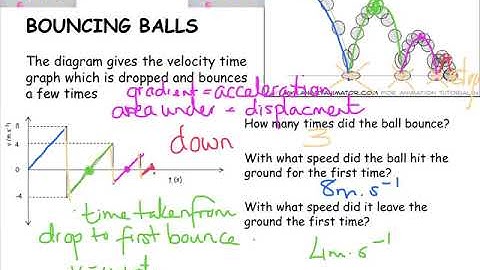 BOUNCING BALLS
The diagram gives the velocity time
graph which is dropped and bounces
a few times
gradient = acceleration
area under = displacment
v (m.s⁻¹)
8
4
0
-4
t (s)
down
time taken from
drop to first bounce
FOR ANIMATION TUTORIALS
How many times did the ball bounce?
3
With what speed did the ball hit the
ground for the first time?
8m.s⁻¹
With what speed did it leave the
ground the first time?
4m.s⁻¹